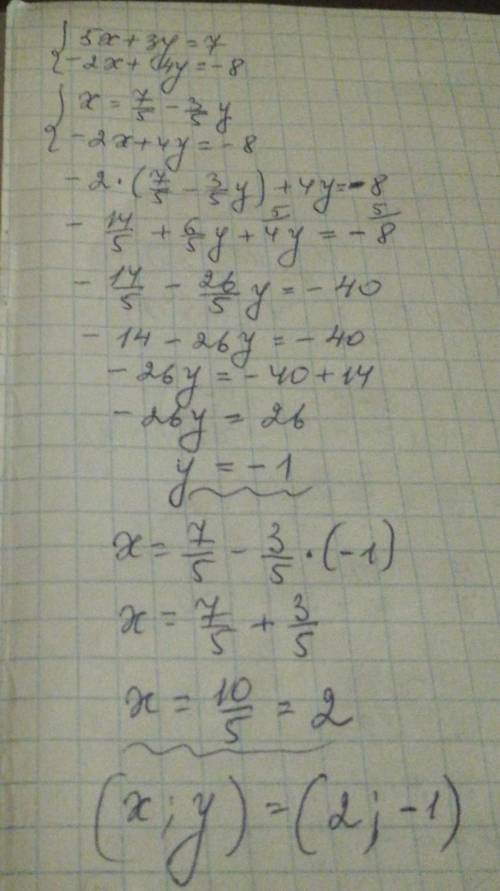 { 5x + 3y = 7
-2x + 4y = -8
{ x = 7/5 - 3/5 y
-2x + 4y = -8
-2 · (7/5 - 3/5 y) + 4y = -8
- 14/5 + 6/5 y + 4y = -8
- 14/5 - 26/5 y = -40
- 14 - 26y = -40
- 26y = -40 + 14
- 26y = 26
y = -1
x = 7/5 - 3/5 · (-1)
x = 7/5 + 3/5
x = 10/5 = 2
(x ; y) = (2 ; -1)